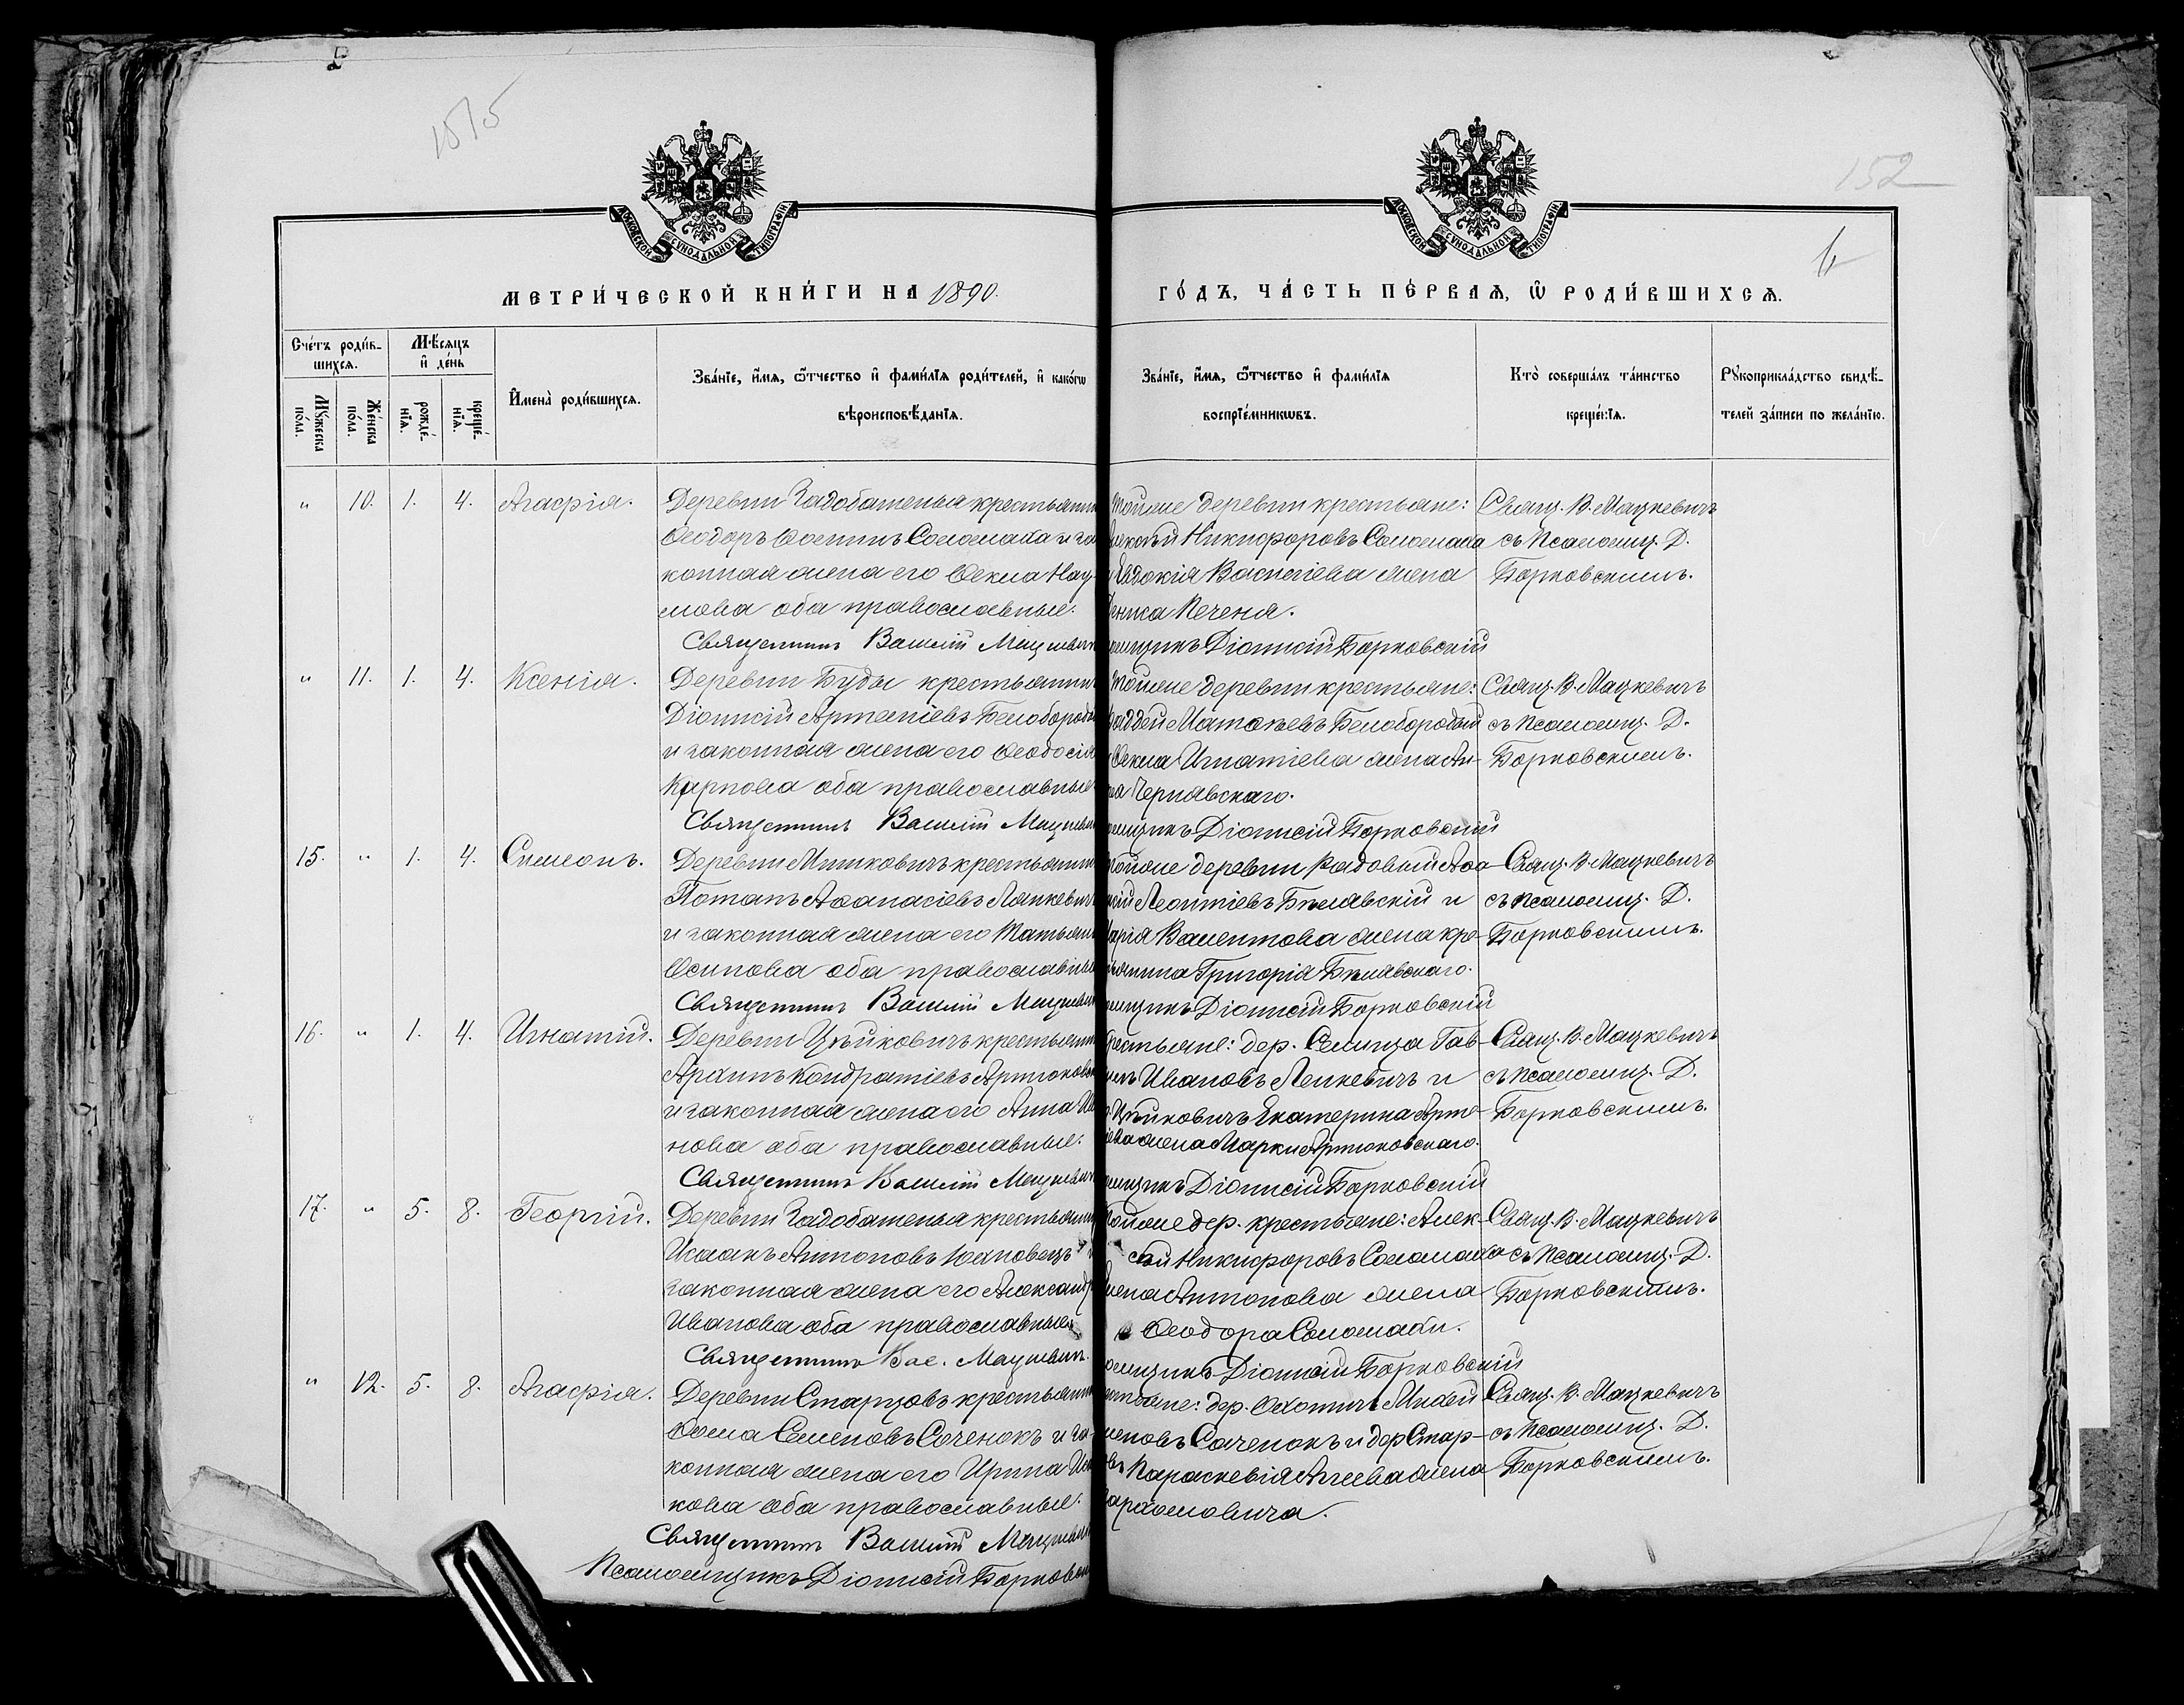 1515
152
6
МОСКОВСКОЙ СУНОДАЛЬНОЙ ТИПОГРАФІИ
МОСКОВСКОЙ СУНОДАЛЬНОЙ ТИПОГРАФІИ
МЕТРИ́ЧЕСКОЙ КНИ́ГИ НА 1890.
ГО́ДЪ, ЧА́СТЬ ПЕ́РВАѦ, Ѽ РОДИ́ВШИХСѦ.
Сче́тъ роди́в-
шихсѧ.
Мꙋ́жеска по́ла.
Же́нска по́ла.
Мѣ́сѧцъ
и҆ де́нь
рожде́-нїѧ.
креще́-нїѧ.
И҆мена̀ роди́вшихсѧ.
Зва́нїе, и҆́мѧ, ѻ҆́тчество и҆ фами́лїѧ роди́телей, и҆ како́гѡ
вѣроисповѣ́данїѧ.
Зва́нїе, и҆́мѧ, ѻ҆́тчество и҆ фами́лїѧ
воспрїе́мникѡвъ.
Кто̀ соверша́лъ та́инство
креще́нїѧ.
Рꙋкоприкла́дство свидѣ́-
телей за́писи по жела́нїю.
" 10. 1. 4. Агафія. Деревни крестьянин
Ѳеодоръ Соломаха и за
конная жена его Ѳекла Нау-
мова оба православные.
Священникъ Василій Мацкевич
тойже деревни крестьяне:
Никифоровъ Соломаха
Евдокія Васильева жена
Печеня.
Діонисій Борковскій
Свящ. В. Мацкевичъ
съ псаломщ. Д.
Борковскимъ.
" 11. 1. 4. Ксенія. Деревни Буды крестьянин
Діонисій Артеміевъ Белобородый
и законная жена его Ѳеодосія
Карпова оба православные
Священникъ Василій Мацкевич
тойже деревни крестьяне:
Ѳаддей Матвѣевъ Белобородый
Ѳекла Игнатіева жена Ан-
Чернявскаго.
Діонисій Борковскій
Свящ. В. Мацкевичъ
съ псаломщ. Д.
Борковскимъ.
15. " 1. 4. Симеонъ. Деревни крестьянин
Потапъ Аѳанасіевъ
и законная жена его Татьяна
Осипова оба православные
Священникъ Василій Мацкевич
тойже деревни
Леонтіевъ Бѣлявскій и
Валентова жена кре-
Григорія Бѣлявскаго.
Діонисій Борковскій
Свящ. В. Мацкевичъ
съ псаломщ. Д.
Борковскимъ.
16. " 1. 4. Игнатій. Деревни Цѣйковичъ крестьянин
Кондратіевъ
и законная жена его Анна Ива
нова оба православные.
Священникъ Василій Мацкевич
крестьяне: дер. Селища Гав-
Ивановъ Ленкевичъ и
Цѣйковичъ Екатерина Арте-
жена Марка Артюховскаго.
Діонисій Борковскій
Свящ. В. Мацкевичъ
съ псаломщ. Д.
Борковскимъ.
17. " 5. 8. Георгій. Деревни крестьянин
Исаакъ Антоновъ и
законная жена его Александр
Иванова оба православные
Священникъ Вас. Мацкевичъ.
тойже дер. крестьяне: Алек-
сѣй Никифоровъ Соломаха
Антонова жена
Ѳеодора Соломахи.
Діонисій Борковскій
Свящ. В. Мацкевичъ
съ псаломщ. Д.
Борковскимъ.
" 12. 5. 8. Агафія. Деревни Старцовъ крестьянин
Ѳома Семеновъ Соченокъ и за-
конная жена его Ирина
кова оба православные.
Священникъ Василій Мацкевич
Псаломщикъ Діонисій Борковскій
дер.
Саченокъ и дер Стар-
Параскевія жена
Свящ. В. Мацкевичъ
съ псаломщ. Д.
Борковскимъ.